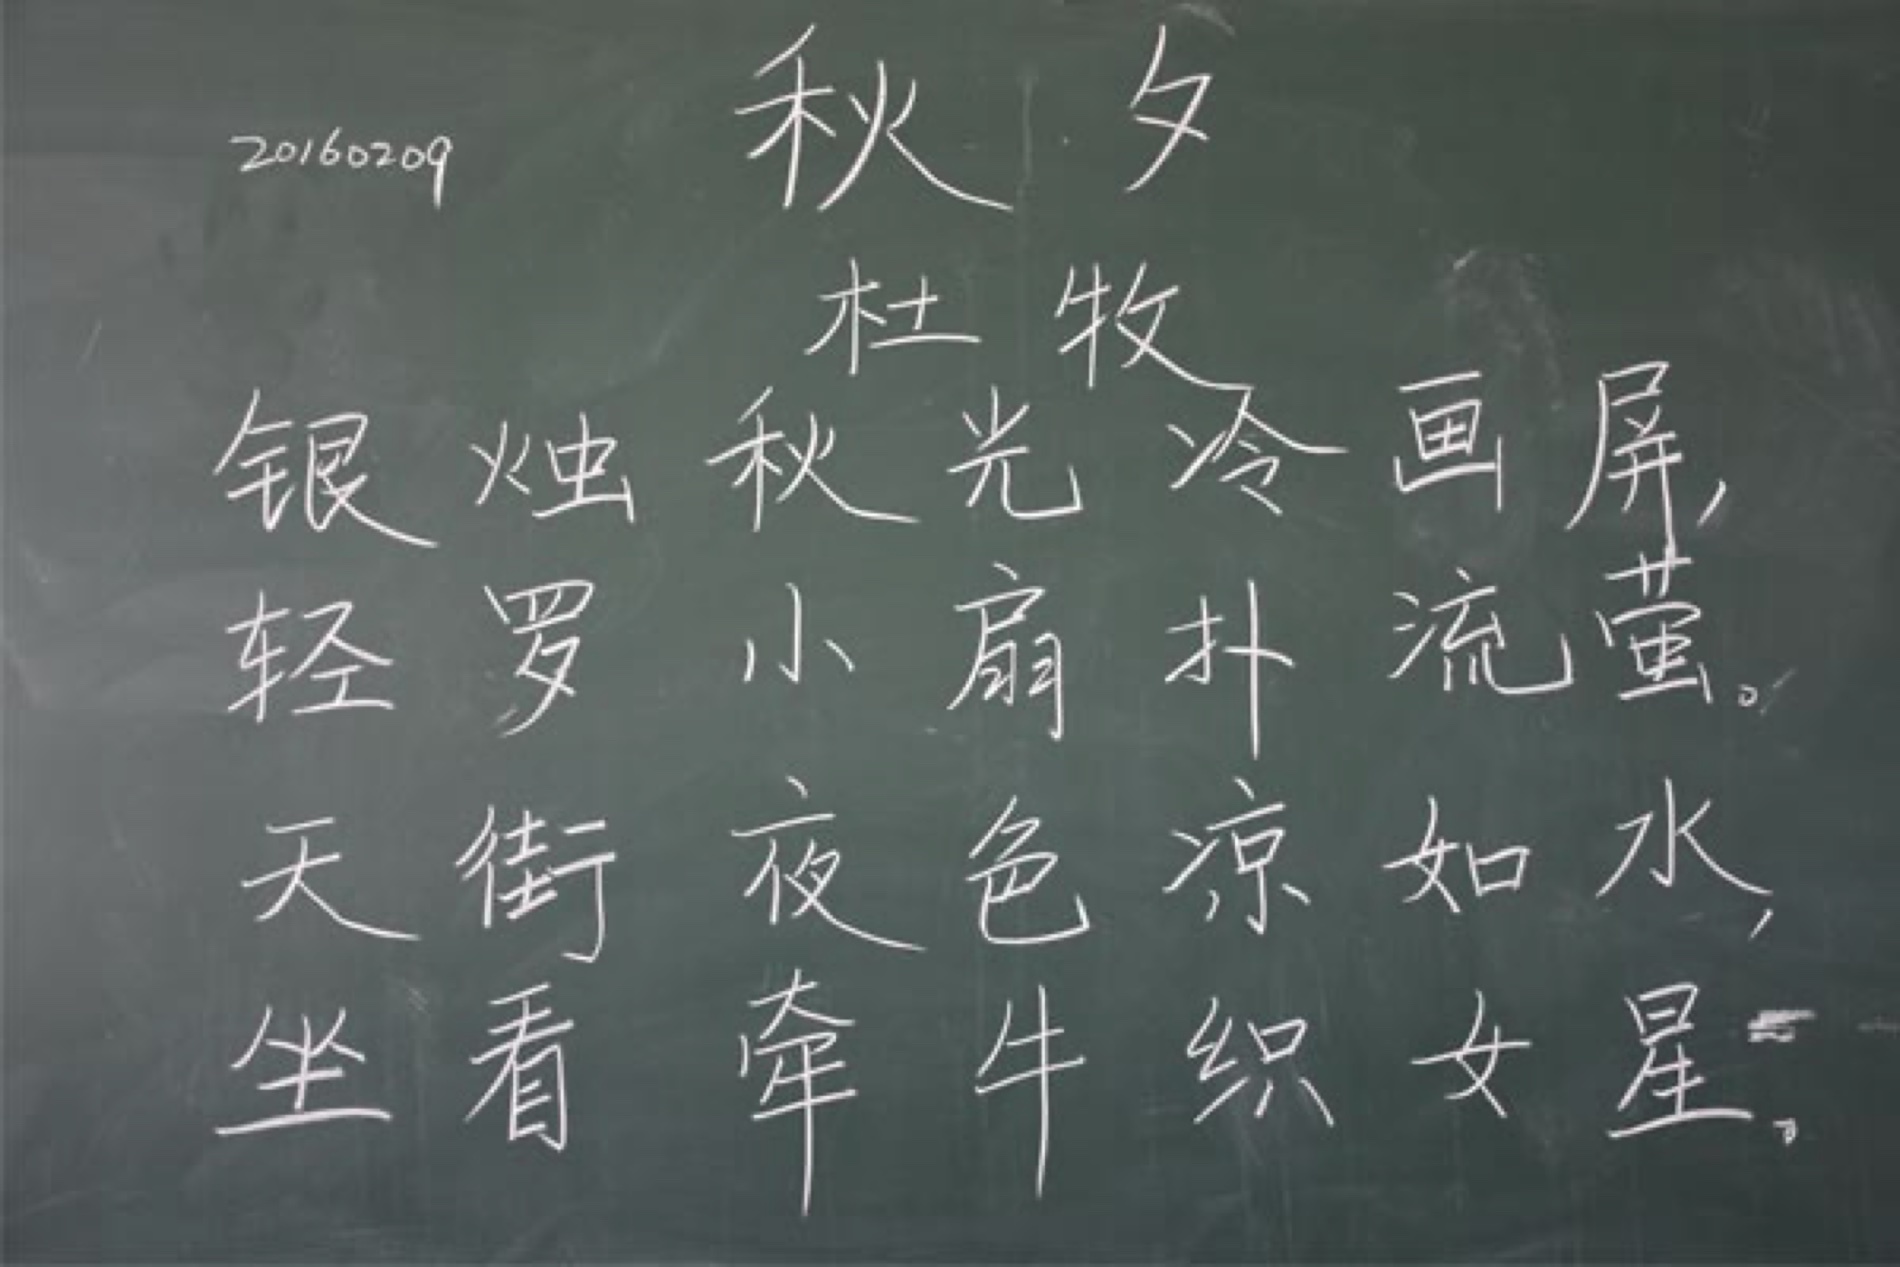 秋夕
20160209
杜牧
银烛秋光冷画屏，
轻罗小扇扑流萤。
天街夜色凉如水，
坐看牵牛织女星。